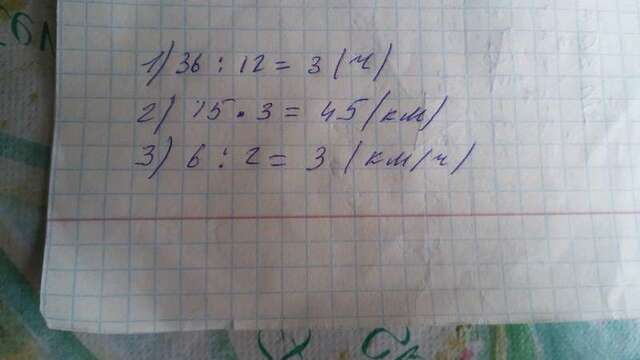 1) 36 : 12 = 3 (ч)
2) 15 • 3 = 45 (км)
3) 6 : 2 = 3 (км/ч)